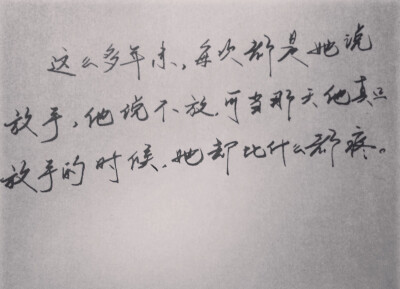 这么多年来，每次都是她说
放手，他说不放，可当那天他真正
放手的时候，她却比什么都疼。